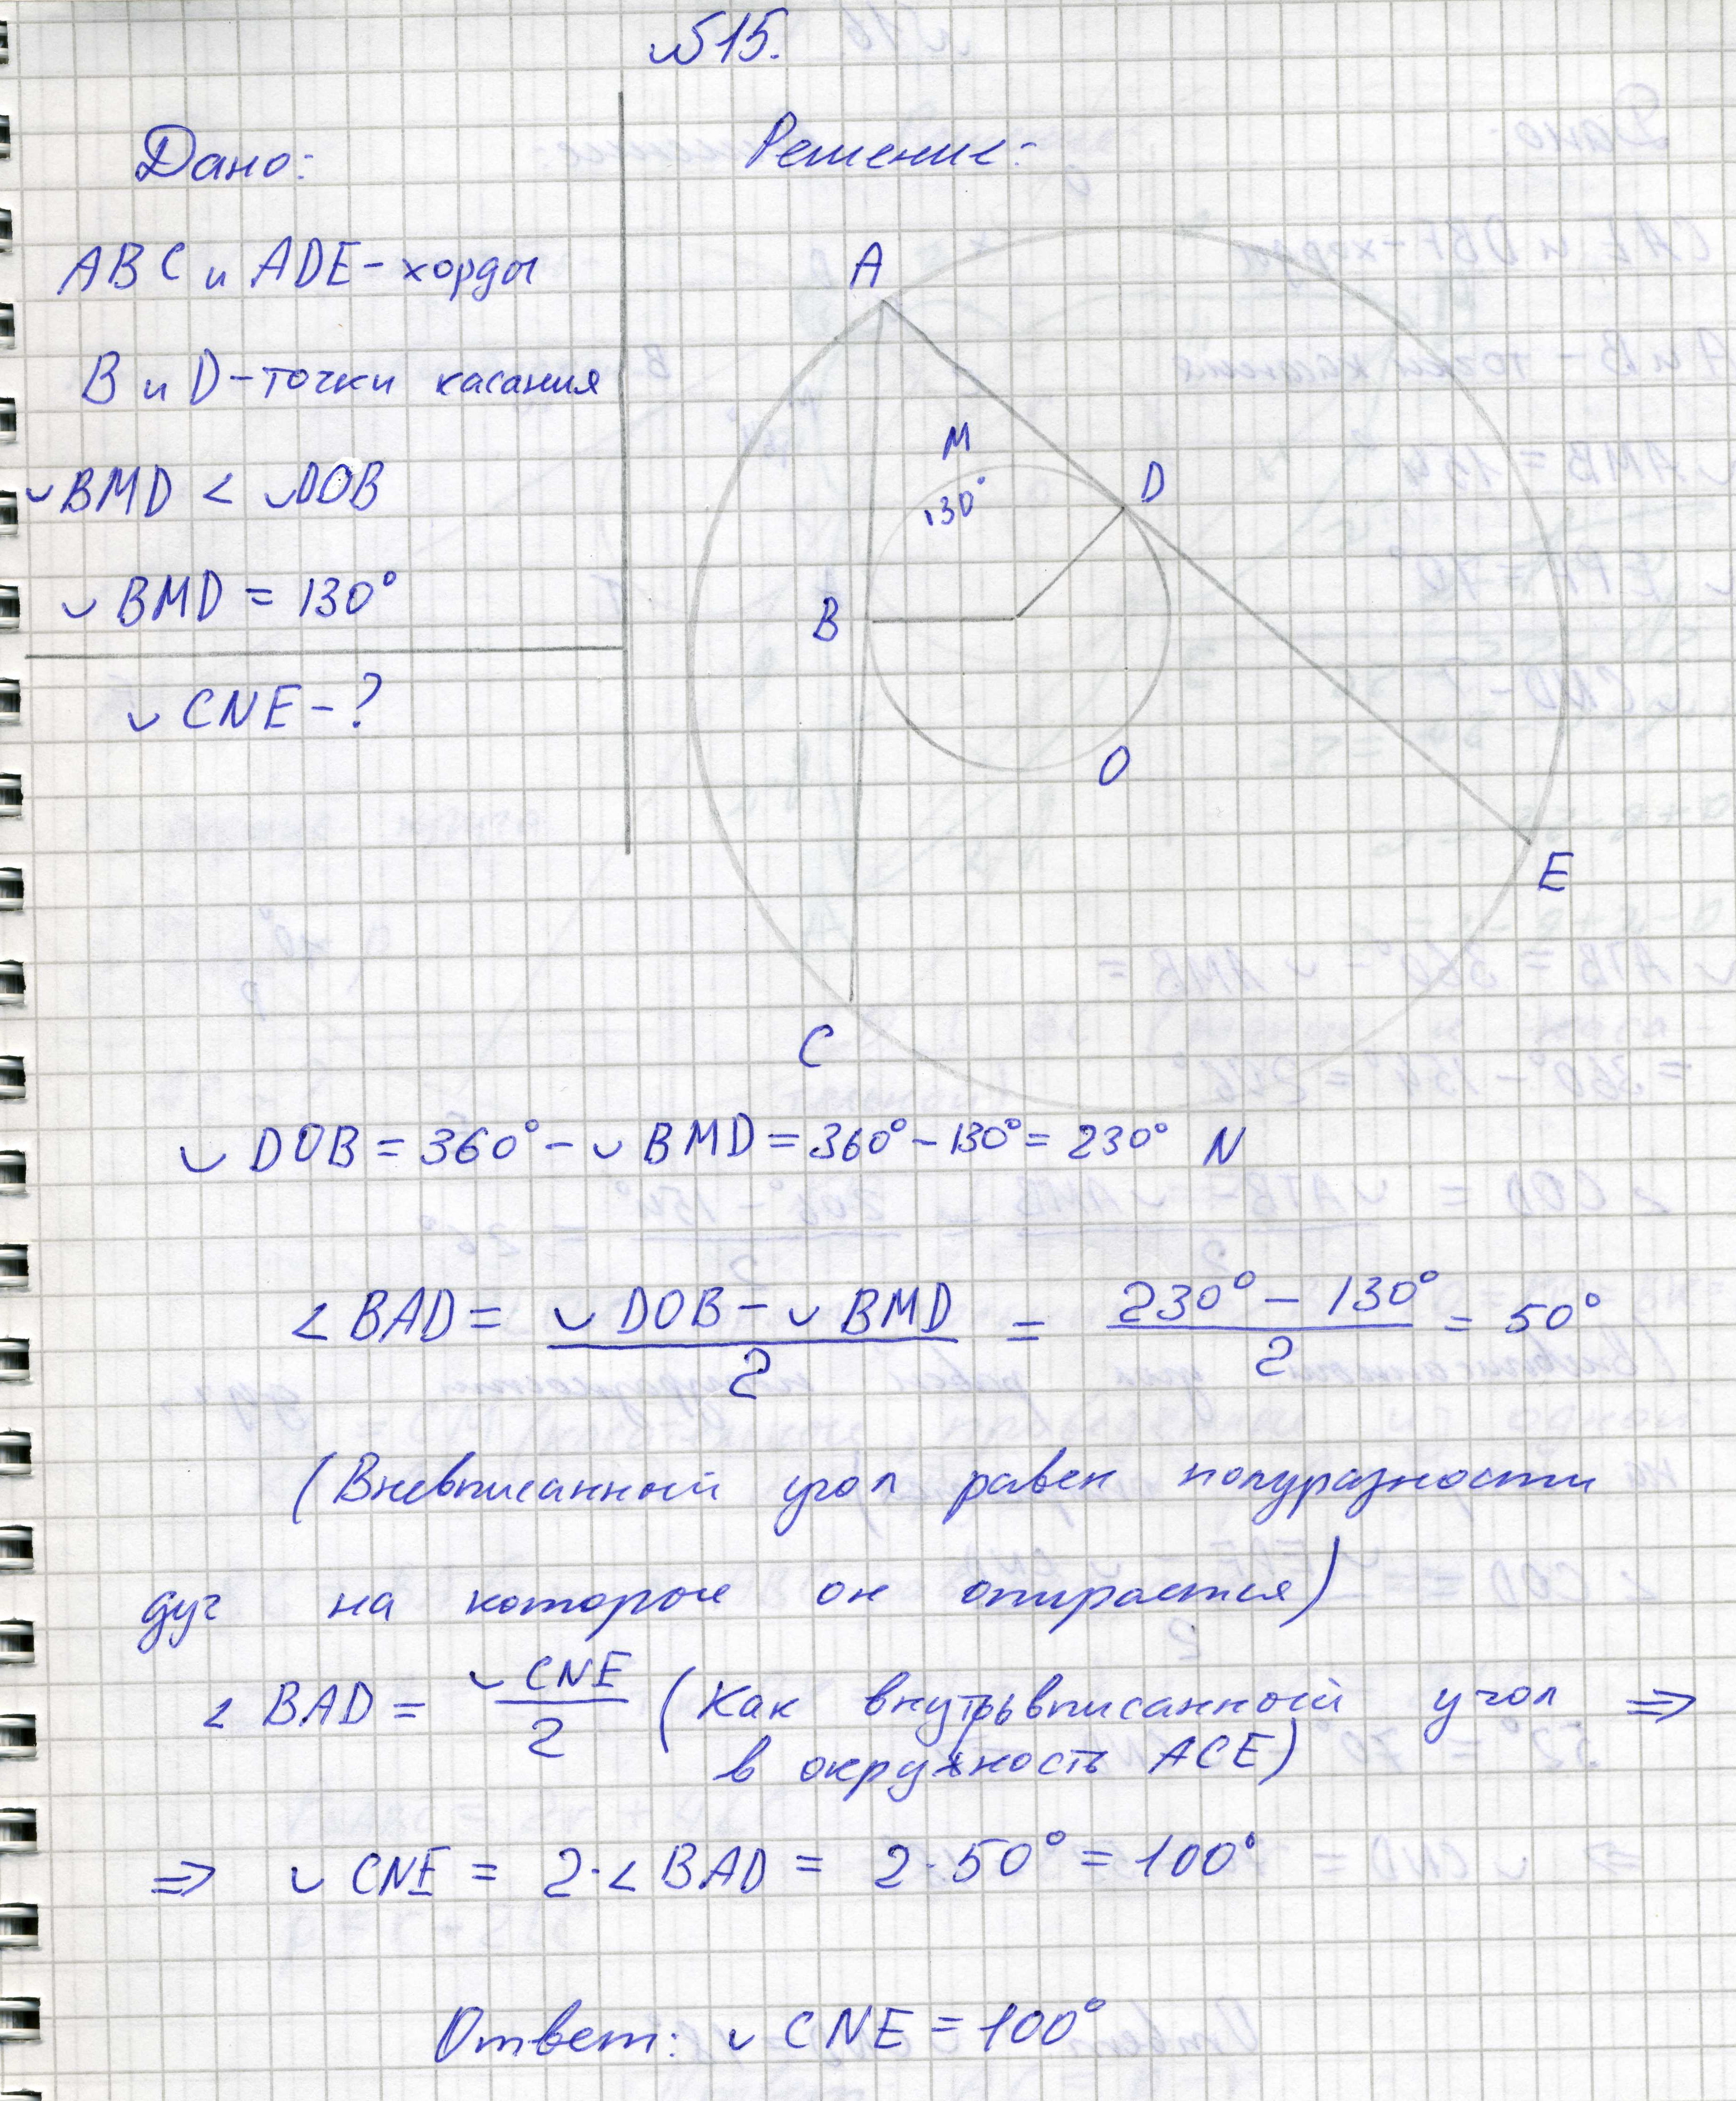 №15.
Дано:
Решение:
ABC и ADE - хорды
B и D - точки касания
◡BMD < ◡DOB
◡BMD = 130°
◡CNE - ?
A
M
130°
D
B
O
E
C
◡DOB = 360° - ◡BMD = 360° - 130° = 230°
N
∠BAD = (◡DOB - ◡BMD)/2 = (230° - 130°)/2 = 50°
(Вневписанный угол равен полуразности
дуг на которые он опирается)
∠BAD = ◡CNE/2 (Как внутрьвписанный угол ⇒
в окружность ACE)
⇒ ◡CNE = 2·∠BAD = 2·50° = 100°
Ответ: ◡CNE = 100°